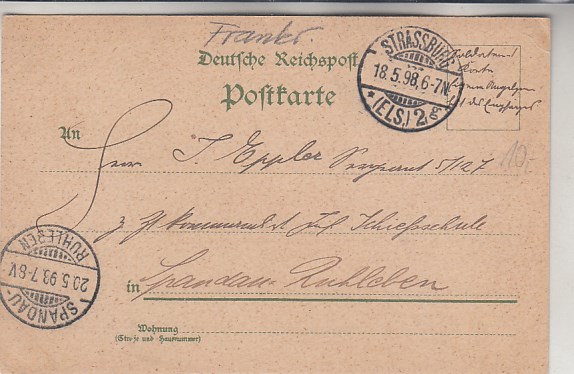 Frankr.
Deutsche Reichspost
Postkarte
STRASSBURG
18.5.98.6-7N.
* (ELS.) 2
Karte
An
Herrn J. Eppler Sergeant 5/127
10.-
z. Zt kommandirt Inf. Schießschule
in Spandau-Ruhleben
SPANDAU-
20.5.98.7-8V.
RUHLEBEN
Wohnung
(Straße und Hausnummer)